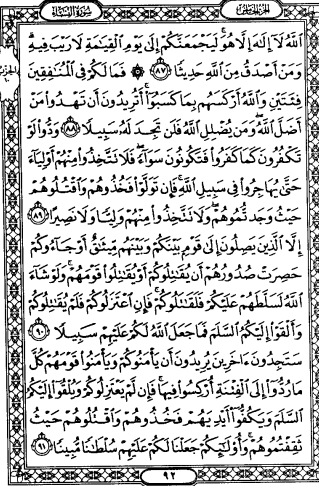 سُورَةُ النِّسَاءِ الجُزءُ الخَامِسُ
اللَّهُ لَا إِلَٰهَ إِلَّا هُوَ لَيَجْمَعَنَّكُمْ إِلَىٰ يَوْمِ الْقِيَامَةِ لَا رَيْبَ فِيهِ
وَمَنْ أَصْدَقُ مِنَ اللَّهِ حَدِيثًا ٨٧ ۞ فَمَا لَكُمْ فِي الْمُنَافِقِينَ
فِئَتَيْنِ وَاللَّهُ أَرْكَسَهُم بِمَا كَسَبُوا أَتُرِيدُونَ أَن تَهْدُوا مَنْ
أَضَلَّ اللَّهُ وَمَن يُضْلِلِ اللَّهُ فَلَن تَجِدَ لَهُ سَبِيلًا ٨٨ وَدُّوا لَوْ
تَكْفُرُونَ كَمَا كَفَرُوا فَتَكُونُونَ سَوَاءً فَلَا تَتَّخِذُوا مِنْهُمْ أَوْلِيَاءَ
حَتَّىٰ يُهَاجِرُوا فِي سَبِيلِ اللَّهِ فَإِن تَوَلَّوْا فَخُذُوهُمْ وَاقْتُلُوهُمْ
حَيْثُ وَجَدتُّمُوهُمْ وَلَا تَتَّخِذُوا مِنْهُمْ وَلِيًّا وَلَا نَصِيرًا ٨٩
إِلَّا الَّذِينَ يَصِلُونَ إِلَىٰ قَوْمٍ بَيْنَكُمْ وَبَيْنَهُم مِّيثَاقٌ أَوْ جَاءُوكُمْ
حَصِرَتْ صُدُورُهُمْ أَن يُقَاتِلُوكُمْ أَوْ يُقَاتِلُوا قَوْمَهُمْ وَلَوْ شَاءَ
اللَّهُ لَسَلَّطَهُمْ عَلَيْكُمْ فَلَقَاتَلُوكُمْ فَإِنِ اعْتَزَلُوكُمْ فَلَمْ يُقَاتِلُوكُمْ
وَأَلْقَوْا إِلَيْكُمُ السَّلَمَ فَمَا جَعَلَ اللَّهُ لَكُمْ عَلَيْهِمْ سَبِيلًا ٩٠
سَتَجِدُونَ ءَاخَرِينَ يُرِيدُونَ أَن يَأْمَنُوكُمْ وَيَأْمَنُوا قَوْمَهُمْ كُلَّ
مَا رُدُّوا إِلَى الْفِتْنَةِ أُرْكِسُوا فِيهَا فَإِن لَّمْ يَعْتَزِلُوكُمْ وَيُلْقُوا إِلَيْكُمُ
السَّلَمَ وَيَكُفُّوا أَيْدِيَهُمْ فَخُذُوهُمْ وَاقْتُلُوهُمْ حَيْثُ
ثَقِفْتُمُوهُمْ وَأُولَٰئِكُمْ جَعَلْنَا لَكُمْ عَلَيْهِمْ سُلْطَانًا مُّبِينًا ٩١
٩٢